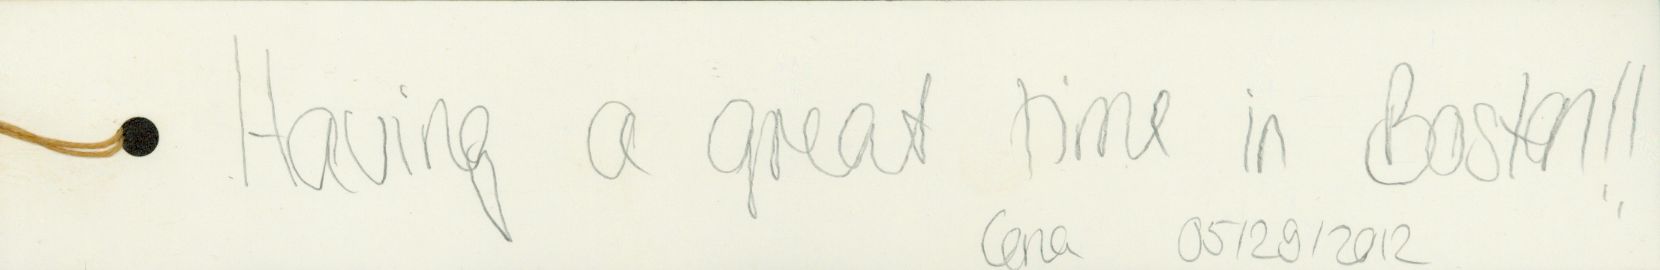 Having a great time in Boston!!
Cena 05/29/2012